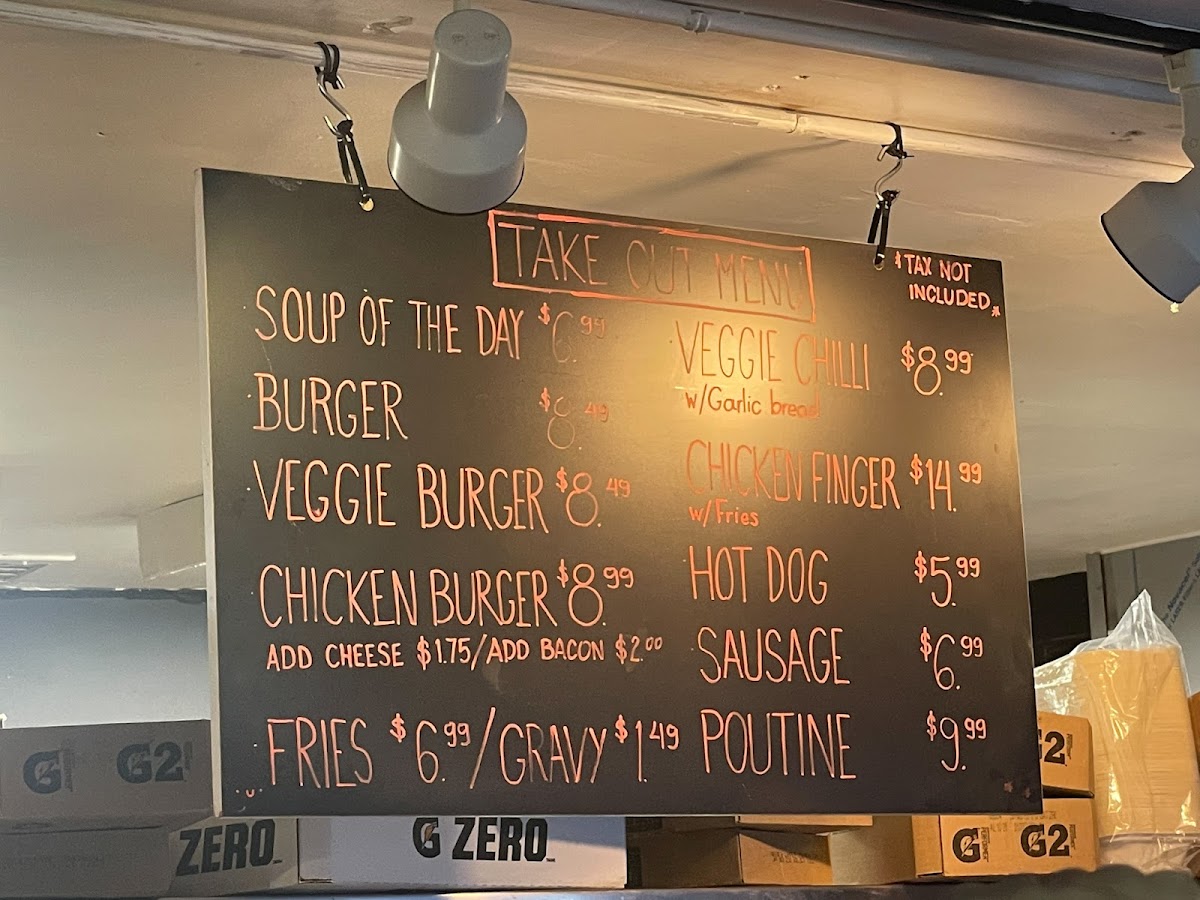 TAKE OUT MENU
*TAX NOT
INCLUDED*
SOUP OF THE DAY $6.99
BURGER $8.49
VEGGIE BURGER $8.49
CHICKEN BURGER $8.99
ADD CHEESE $1.75/ADD BACON $2.00
FRIES $6.99/GRAVY $1.49
VEGGIE CHILLI $8.99
w/Garlic bread
CHICKEN FINGER $14.99
w/Fries
HOT DOG $5.99
SAUSAGE $6.99
POUTINE $9.99
G G2
ZERO
G ZERO
G G2